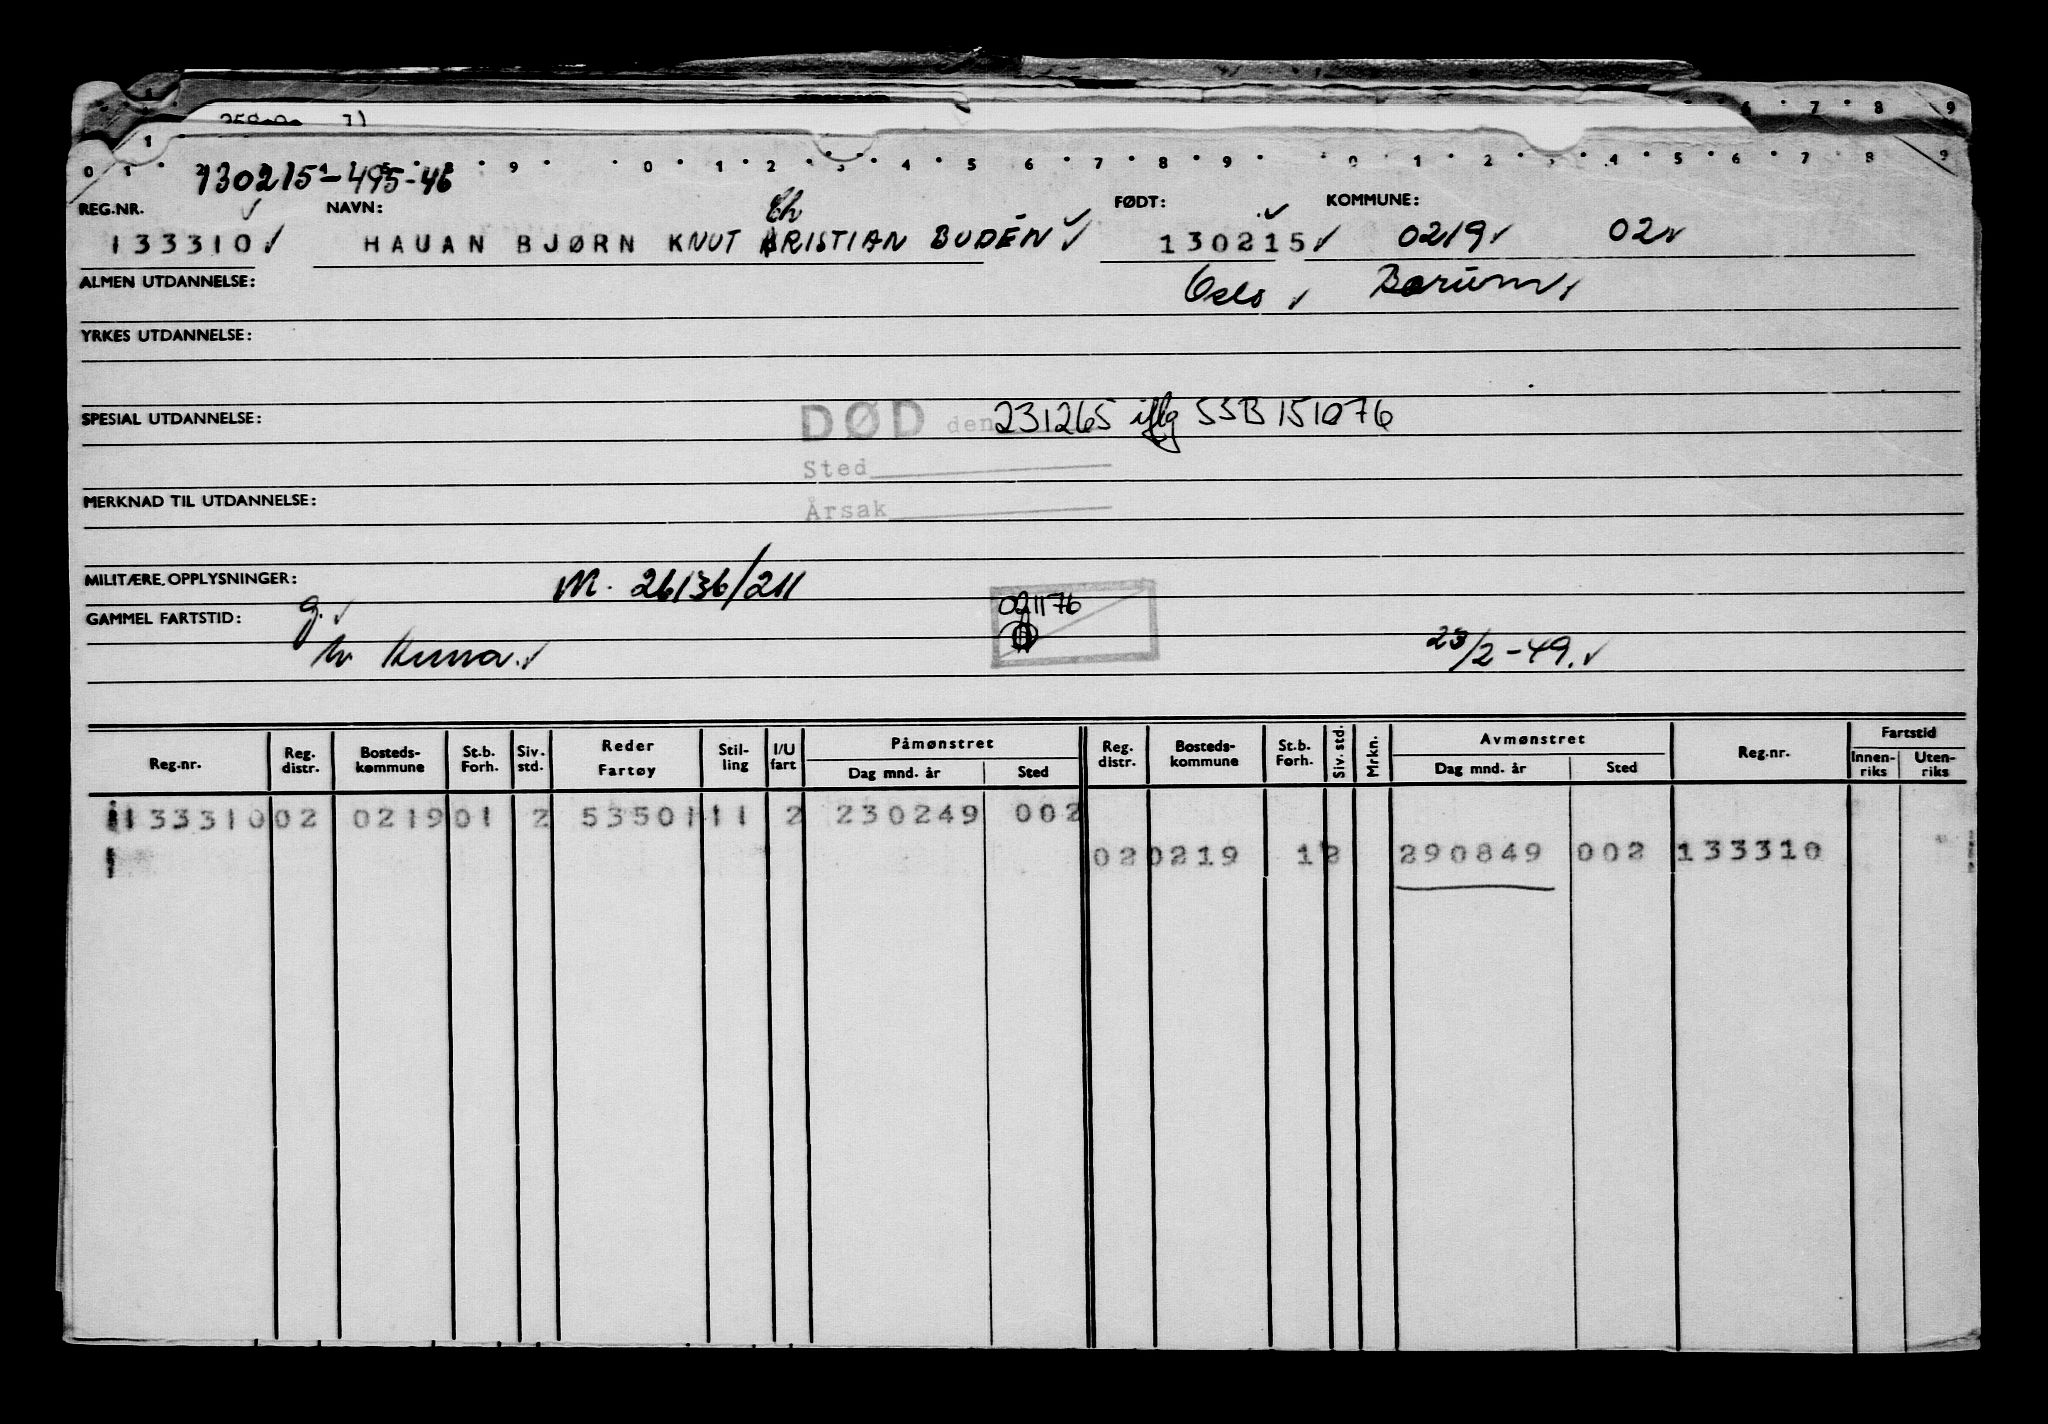 6 7 8 9
1
0 1 9 0 1 2 3 4 5 6 7 8 9 0 1 2 3 4 5 6 7 8 9
130215-495-46
REG.NR. NAVN: Ch FØDT: KOMMUNE:
133310 HAUAN BJØRN KNUT KRISTIAN BUDÉN 130215 0219 02
ALMEN UTDANNELSE: Oslo Bærum
YRKES UTDANNELSE:
SPESIAL UTDANNELSE: DØD den 231265 iflg SSB 151076
Sted
MERKNAD TIL UTDANNELSE: Årsak
MILITÆRE OPPLYSNINGER: M. 26136/211
GAMMEL FARTSTID: g. 021176
23/2-49.
Reg.nr. Reg. distr. Bosteds- kommune St.b. Forh. Siv. std. Reder Fartøy Stil- ling I/U fart Påmønstret Dag mnd. år Sted Reg. distr. Bosteds- kommune St.b. Forh. Siv. std. Mrkn. Avmønstret Dag mnd. år Sted Reg.nr. Fartstid Innen- riks Uten- riks
133310 02 0219 01 2 53501 11 2 230249 002
02 0219 1 2 290849 002 133310